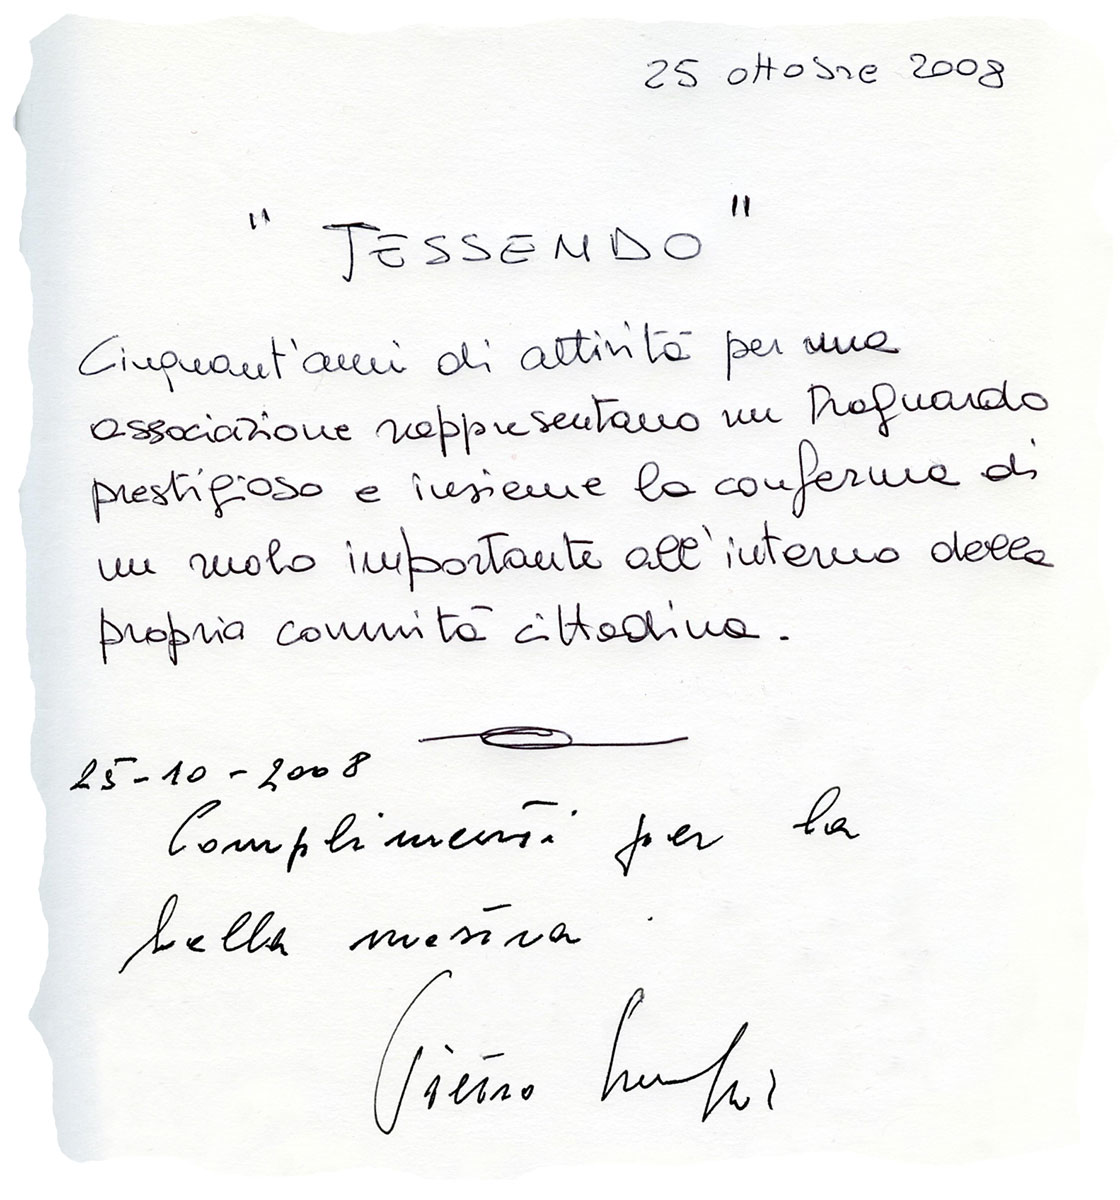 25 ottobre 2008
"TESSENDO"
Cinquant'anni di attività per una
associazione rappresentano un traguardo
prestigioso e insieme la conferma di
un ruolo importante all'interno della
propria comunità cittadina.
25-10-2008
Complimenti per la
bella mostra.
Pietro